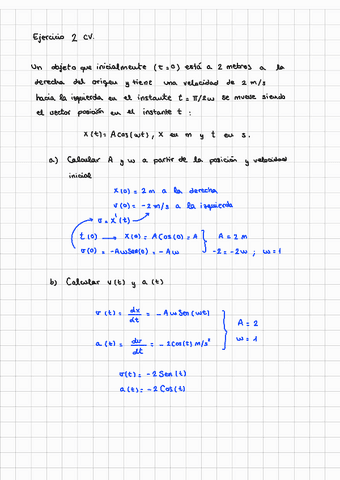 Ejercicio 2 CV.
Un objeto que inicialmente (t=0) está a 2 metros a la
derecha del origen y tiene una velocidad de 2 m/s
hacia la izquierda en el instante t = π/2ω se mueve siendo
el vector posición en el instante t :
X(t) = A cos(ωt) , X en m y t en s.
a) Calcular A y ω a partir de la posición y velocidad
inicial
X(0) = 2 m a la derecha
V(0) = -2 m/s a la izquierda
v = x'(t)
t(0) → X(0) = A cos(0) = A } A = 2 m
v(0) = -Aω Sen(0) = -Aω } -2 = -2ω ; ω = 1
b) Calcular v(t) y a(t)
v(t) = dx/dt = -Aω Sen(ωt)
a(t) = dv/dt = -2 cos(t) m/s²
A = 2
ω = 1
v(t) = -2 Sen(t)
a(t) = -2 Cos(t)